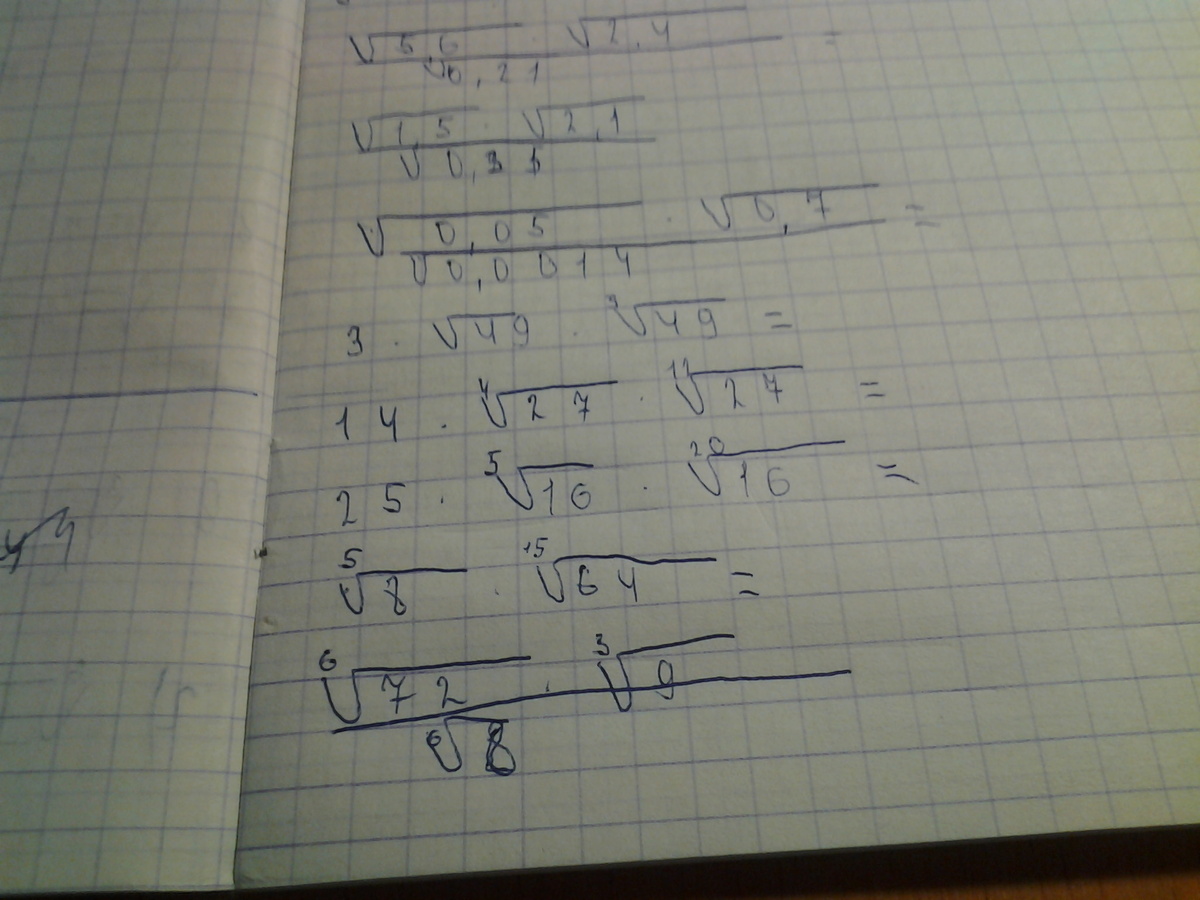 √5,6 · √2,4 =
√0,21
√1,5 · √2,1
√0,35
√0,05 · √0,7 =
√0,0014
3 · √49 · ³√49 =
14 · ⁴√27 · ¹²√27 =
25 · ⁵√16 · ²⁰√16 =
⁵√8 · ¹⁵√64 =
⁶√72 · ³√9
⁶√8